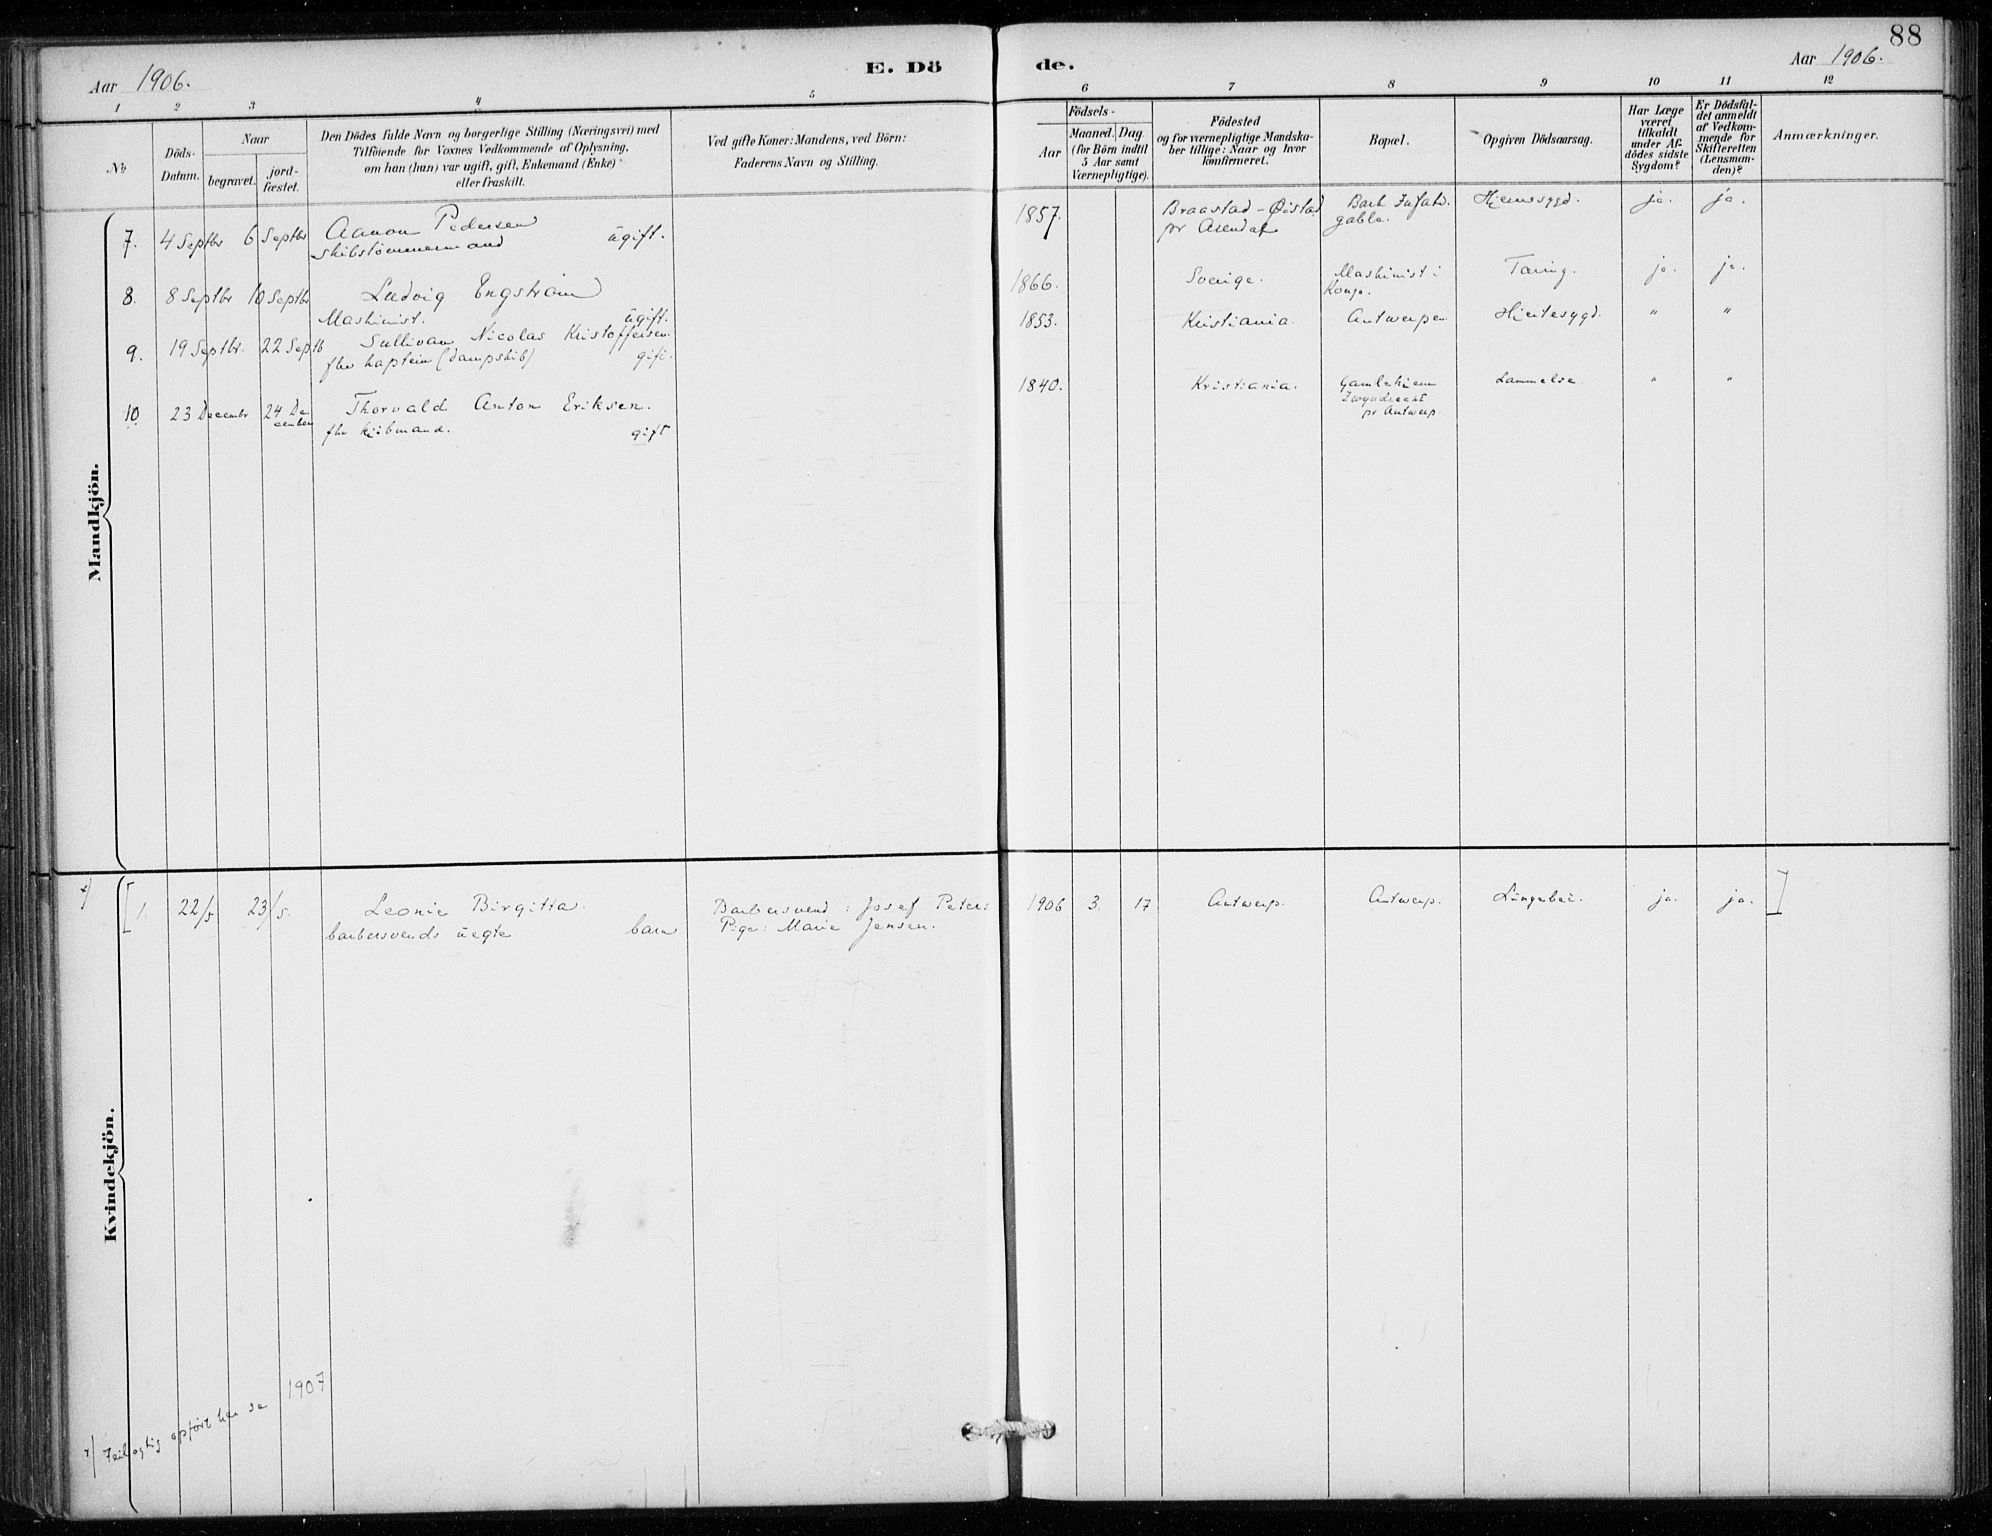 88
Aar 1906.
E. Dö de.
Aar 1906.
1 2 3 4 5 6 7 8 9 10 11 12
No.
Döds-Datum.
Naar
begravet.
jord-fæstet.
Den Dödes fulde Navn og borgerlige Stilling (Næringsvei) med
Tilföiende for Voxnes Vedkommende af Oplysning,
om han (hun) var ugift, gift, Enkemand (Enke)
eller fraskilt.
Ved gifte Koner: Mandens, ved Börn:
Faderens Navn og Stilling.
Födsels-
Aar
Maaned. Dag
(for Börn indtil
5 Aar samt
Værnepligtige).
Födested
og for værnepligtige Mandska-
ber tillige: Naar og hvor
konfirmeret.
Bopæl.
Opgiven Dödsaarsag.
Har Læge
været
tilkaldt
under Af-
dödes sidste
Sygdom?
Er Dödsfal-
det anmeldt
af Vedkom-
mende for
Skifteretten
(Lensman-
den)?
Anmærkninger.
Mandkjön.
7. 4 Septbr 6 Septbr Aanon Pedersen
skibstømmermand ugift.
1857. Braastad - Øistad
pr Arendal
Bark
gabla.
ja. ja.
8. 8 Septbr 10 Septbr Ludvig Engström
Maskinist. ugift.
1866. Sverige.
Maskinist i
Kongo.
Tæring. ja. ja.
9. 19 Septbr. 22 Septb Sullivan Nicolas Kristoffersen
fhv kaptein (dampskib) gift.
1853. Kristiania. Antwerpen Hjertesygd. " "
10. 23 Decembr 24 De
cember
Thorvald Anton Eriksen.
fhv kjöbmand. gift
1840. Kristiania.
Gamlehiem
Zwyndrecht
pr Antwerp.
Lammelse. " "
Kvindekjön.
x) [ 1. 22/5 23/5. Leonie Birgitta.
barbersvends uegte barn
Barbersvend: Josef Peters
Pige: Marie Jensen.
1906 3. 17 Antwerp. Antwerp. ja. ja. ]
x) Feilagtig opført her se 1907